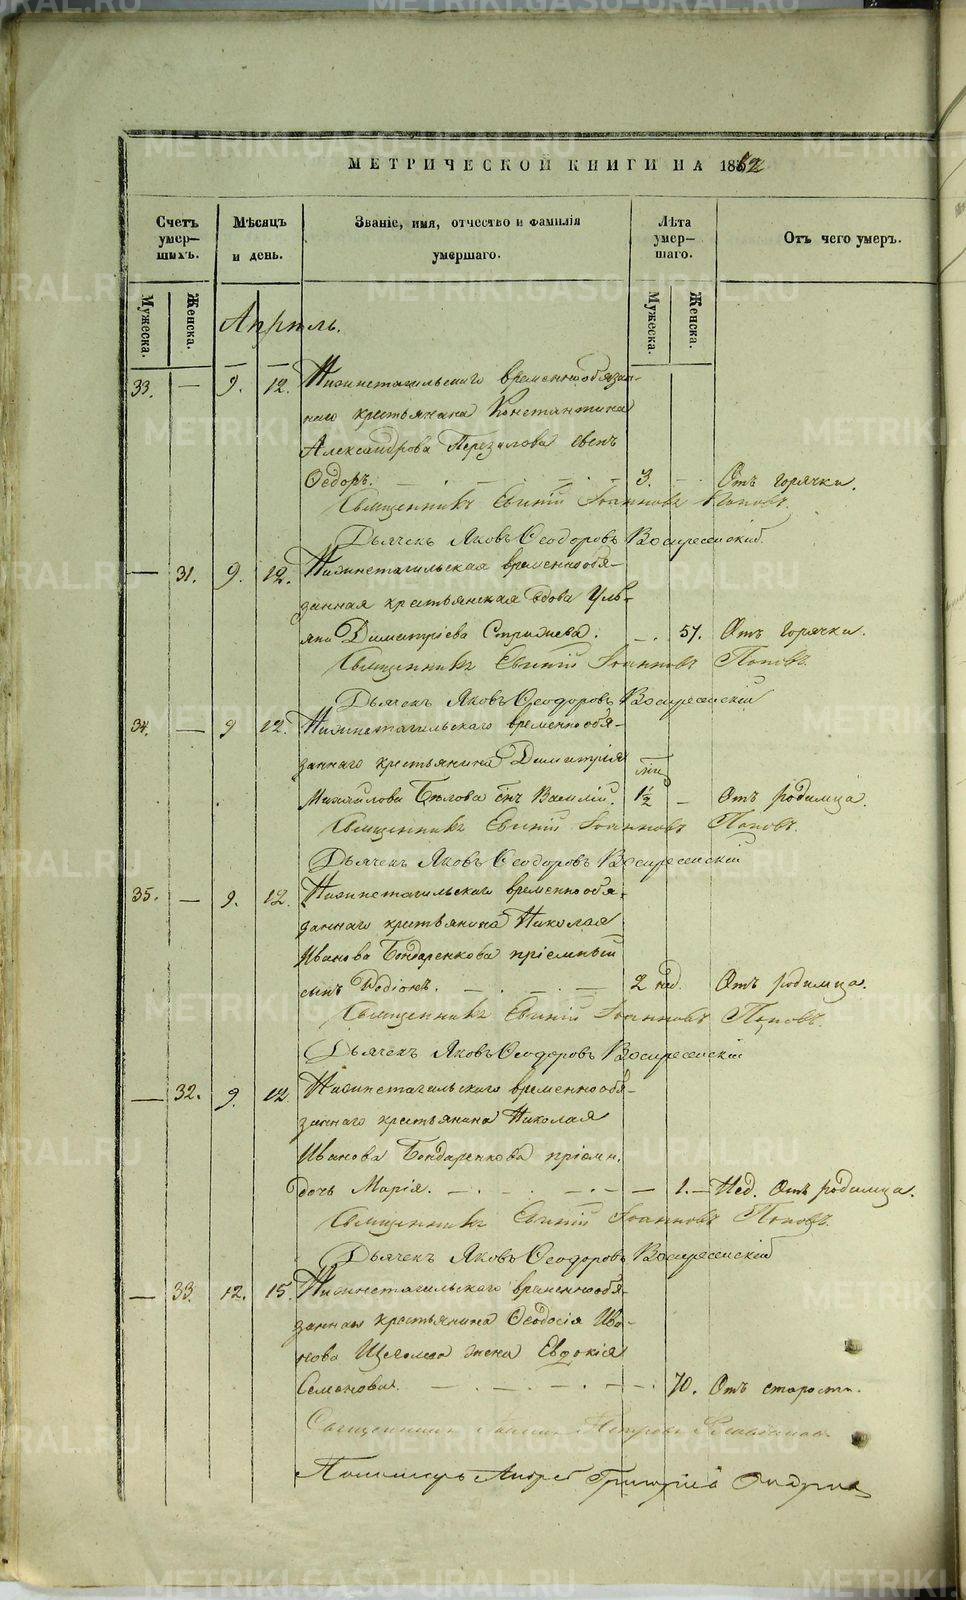 МЕТРИЧЕСКОЙ КНИГИ НА 1862
Счетъ умер-шихъ.
Мѣсяцъ и день.
Званіе, имя, отчество и фамилія умершаго.
Лѣта умер-шаго.
Отъ чего умеръ.
Мужеска.
Женска.
Мужеска.
Женска.
Апрѣль.
33. — 9. 12. Нижнетагильскаго временнообязан-
наго крестьянина Константина
Александрова сынъ
Ѳедоръ. 3. Отъ горячки.
Священникъ Евгеній Іоанновъ Поповъ.
Дьячекъ Яковъ Ѳеодоровъ Воскресенскій.
— 31. 9. 12. Нижнетагильская временнообя-
занная крестьянская вдова Улья-
яна Димитріева Стрижева. — 57. Отъ горячки.
Священникъ Евгеній Іоанновъ Поповъ.
Дьячекъ Яковъ Ѳеодоровъ Воскресенскій
34. — 9 12. Нижнетагильскаго временнообя-
заннаго крестьянина Димитрія
Михайлова Бѣлова сынъ Василій. 1½ — Отъ родимца.
Священникъ Евгеній Іоанновъ Поповъ.
Дьячекъ Яковъ Ѳеодоровъ Воскресенскій
35. — 9. 12. Нижнетагильскаго временнообя-
заннаго крестьянина Николая
Иванова Бондаренкова пріемный
сынъ Родіонъ. 2 нед. Отъ родимца.
Священникъ Евгеній Іоанновъ Поповъ.
Дьячекъ Яковъ Ѳеодоровъ Воскресенскій
— 32. 9. 12 Нижнетагильскаго временнообя-
заннаго крестьянина Николая
Иванова Бондаренкова пріемн.
дочь Марія. — 1. — Нед. Отъ родимца.
Священникъ Евгеній Іоанновъ Поповъ.
Дьячекъ Яковъ Ѳеодоровъ Воскресенскій
— 33. 12. 15. Нижнетагильскаго временнообя-
заннаго крестьянина Ѳеодосія Ива-
нова жена Евдокія
Семенова. 70. Отъ старости.
Священникъ Петровъ
Пономарь Андрей Григорьевъ
METRIKI.GASO-URAL.RU